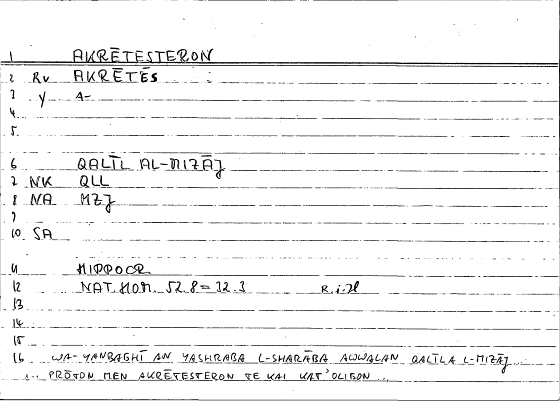 1 AKRĒTESTERON
2 Rv AKRĒTĒS :
3 Y A-
4
5
6 QALĪL AL-MIZĀJ
7 NK QLL
8 NA MZJ
9
10 SA
11 HIPPOCR
12 NAT. HOM. 52.8 = 32.3
13
14
15
16 WA-YANBAGHĪ AN YASHRABA L-SHARĀBA AWWALAN QALĪLA L-MIZĀJ ...
... PRŌTON MEN AKRĒTESTERON TE KAI KAT'OLIGON ...